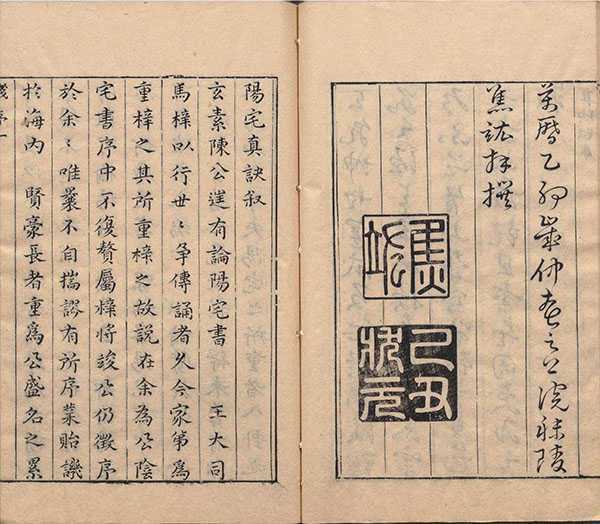 萬曆乙卯歲仲春之上浣秣陵
焦竑拜撰
焦竑
己丑狀元
陽宅真訣叙
玄素陳公有論陽宅書 王大司
馬梓以行世〻爭傳誦者久今家弟為
重梓之其所重梓之故說在余為公陰
宅書序中不復贅屬梓將竣公仍徵序
於余〻唯曩不自揣謬有所序業貽譏
於海內 賢豪長者重為公盛名之累
序一